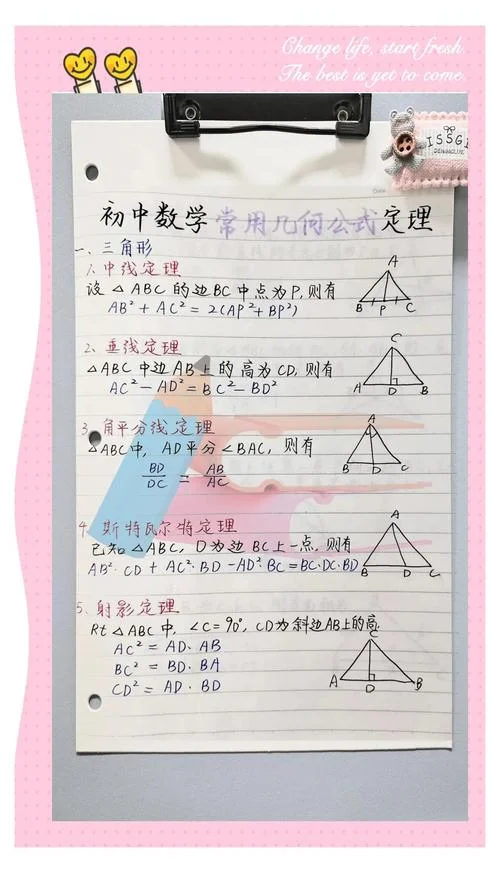 Change life, start fresh.
The best is yet to come.
ISSGE
Date
初中数学常用几何公式定理
一、三角形
1、中线定理
设△ABC的边BC中点为P,则有
AB²+AC²=2(AP²+BP²)
A
B P C
2、垂线定理
△ABC中边AB上的高为CD,则有
AC²-AD²=BC²-BD²
C
A D B
3、角平分线定理
△ABC中,AD平分∠BAC,则有
BD/DC = AB/AC
A
B D C
4、斯特瓦尔特定理
已知△ABC,D为边BC上一点,则有
AB²·CD+AC²·BD-AD²·BC=BC·DC·BD
A
B D C
5、射影定理
Rt△ABC中,∠C=90°,CD为斜边AB上的高.
AC²=AD·AB
BC²=BD·BA
CD²=AD·BD
C
A D B